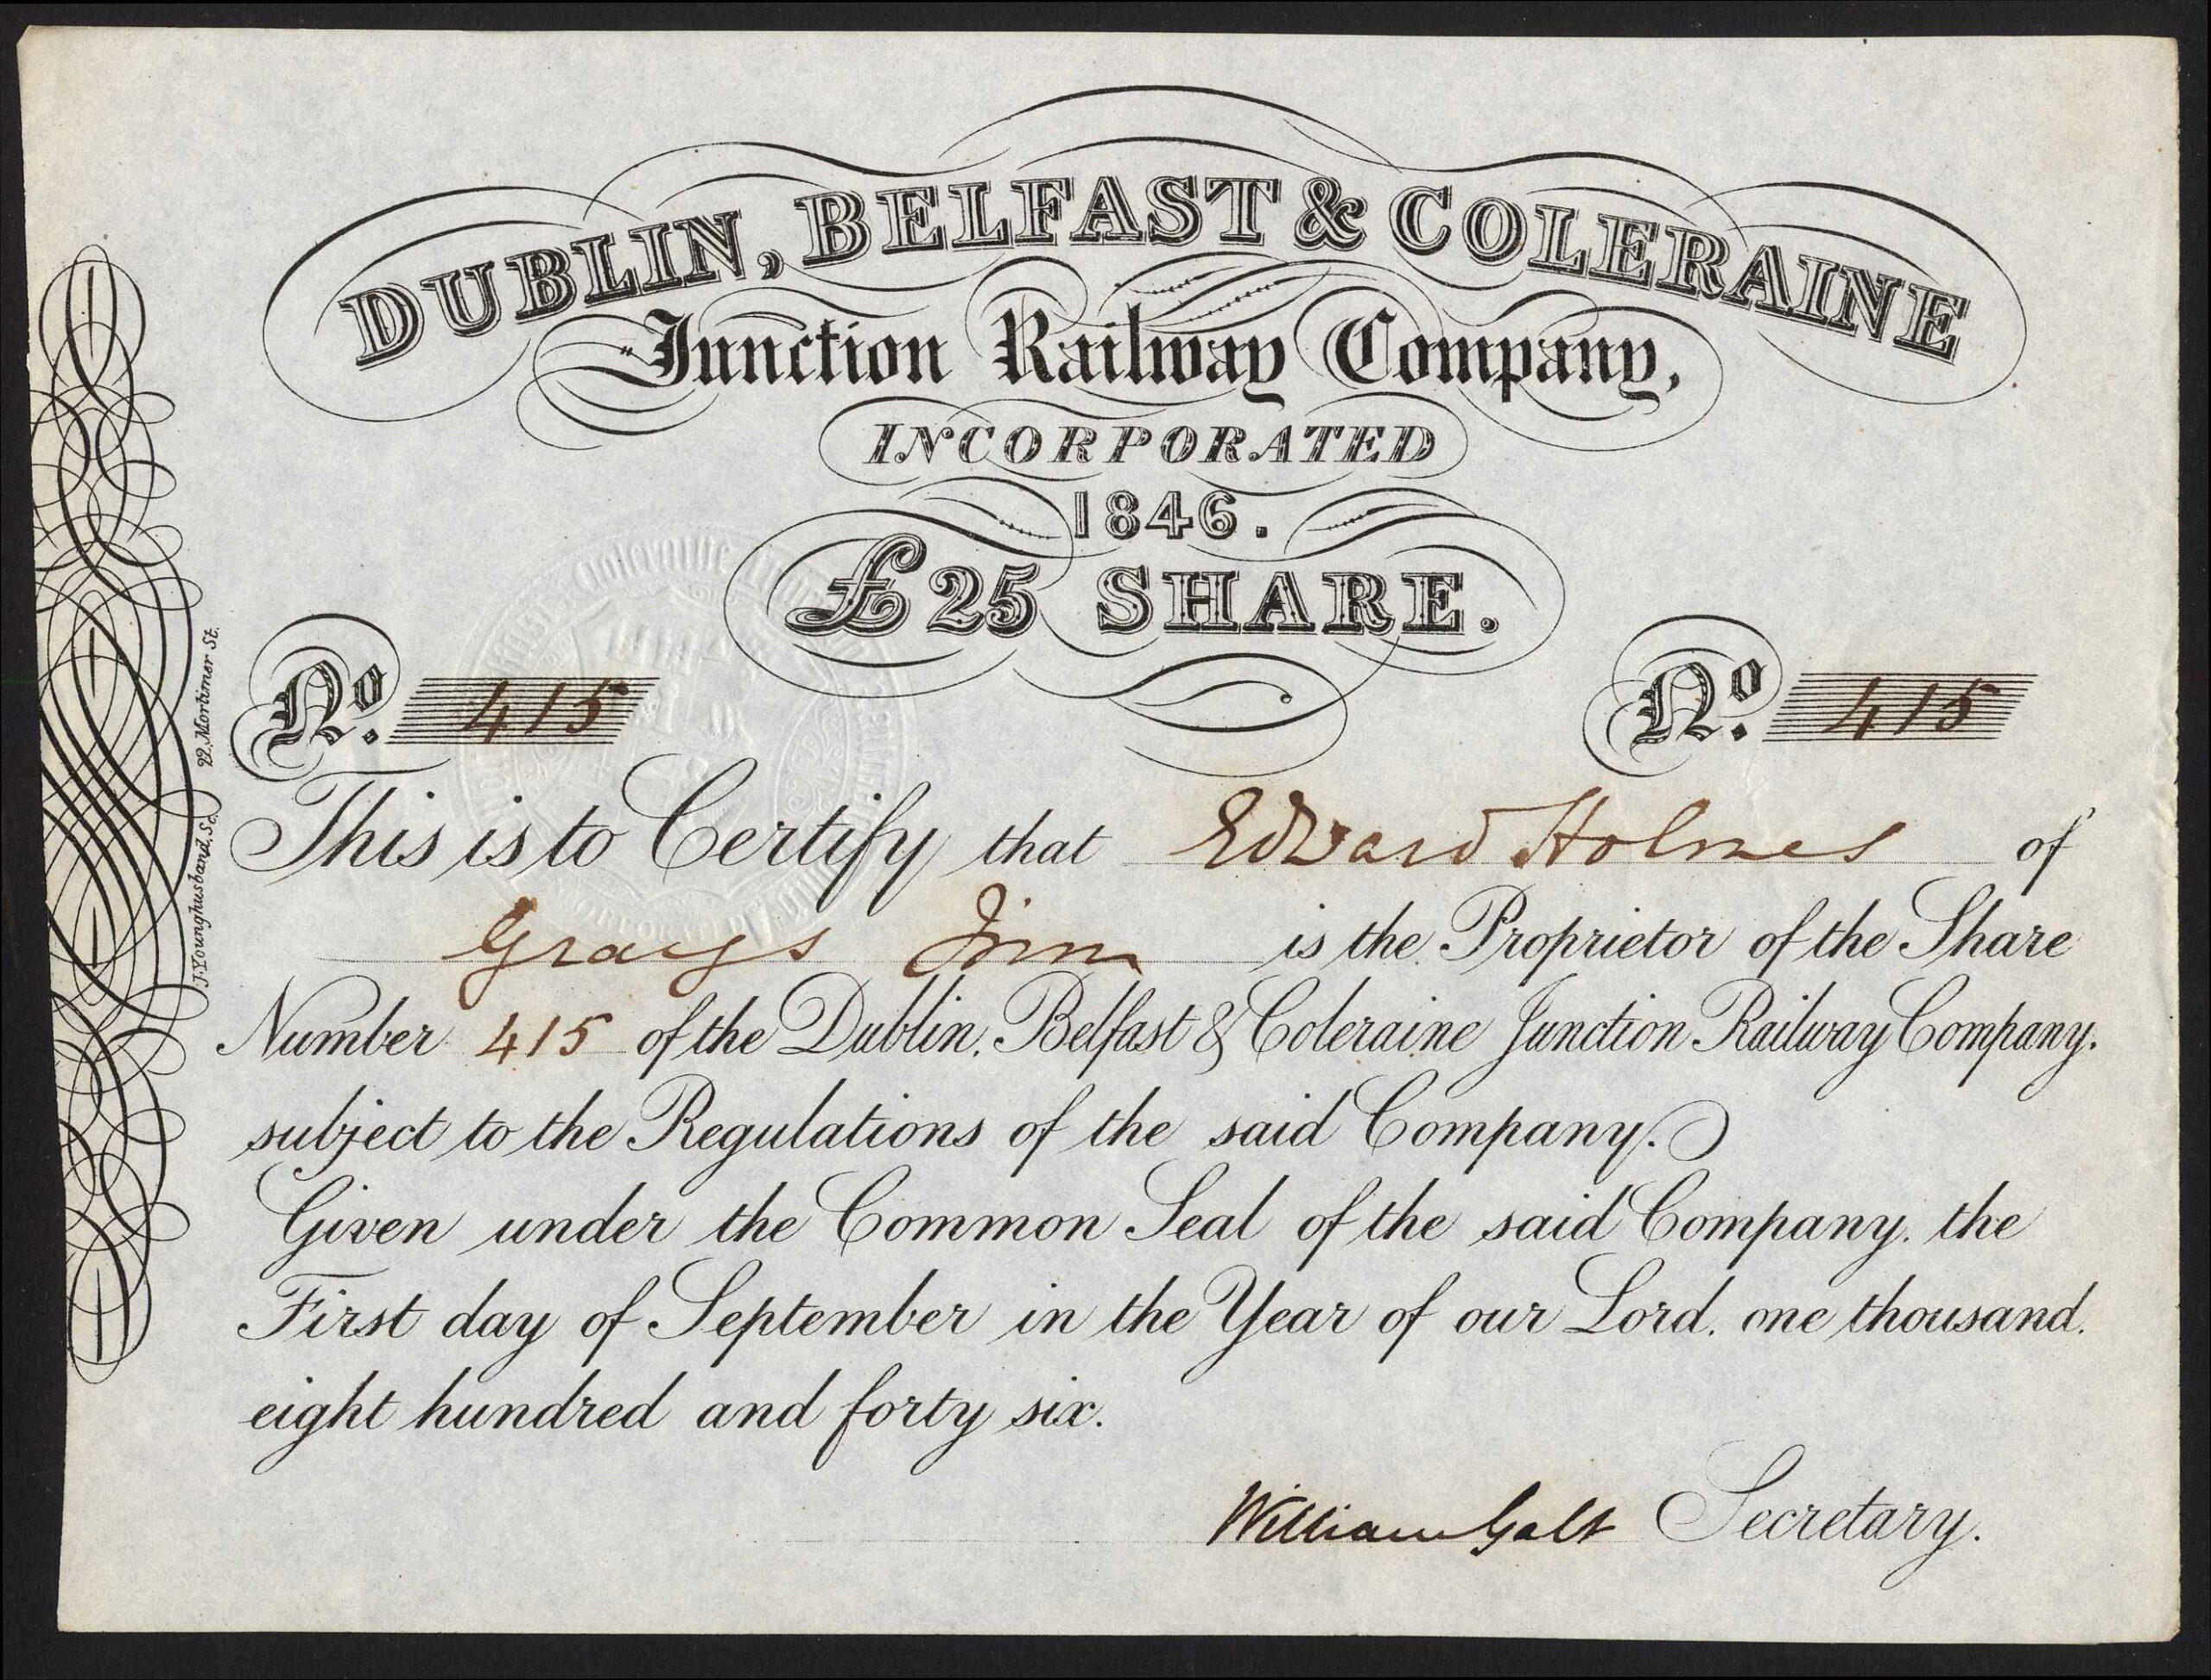 DUBLIN, BELFAST & COLERAINE
Junction Railway Company,
INCORPORATED
1846.
£25 SHARE.
No. 415 No. 415
This is to Certify that Edward Holmes of
Grays Inn is the Proprietor of the Share
Number 415 of the Dublin, Belfast & Coleraine Junction Railway Company.
subject to the Regulations of the said Company.
Given under the Common Seal of the said Company, the
First day of September in the Year of our Lord, one thousand,
eight hundred and forty six.
William Galt Secretary.
J. Younghusband, Sc. 22, Mortimer St.